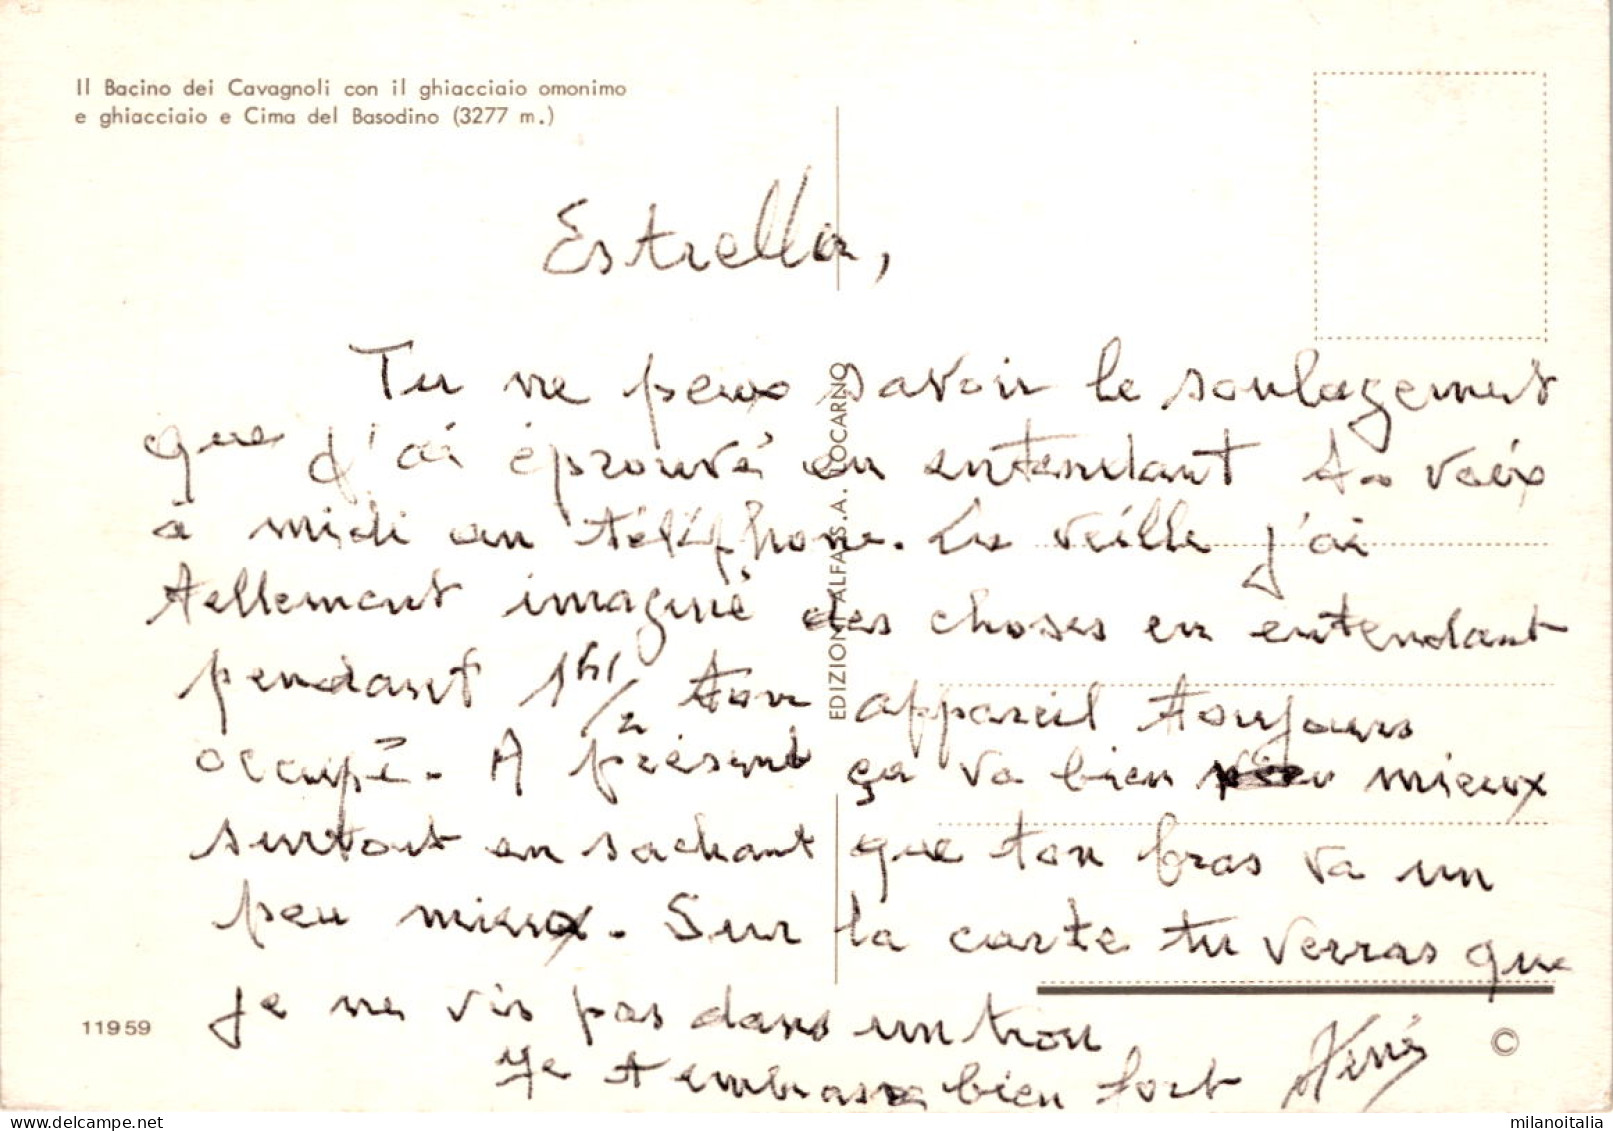 Il Bacino dei Cavagnoli con il ghiacciaio omonimo
e ghiacciaio e Cima del Basodino (3277 m.)
Estrella,
Tu ne peux savoir le soulagement
que j'ai éprouvé en entendant ta voix
à midi au téléphone. La veille j'ai
tellement imaginé des choses en entendant
pendant 1h 1/2 ton appareil toujours
occupé. A présent ça va bien mieux
surtout en sachant que ton bras va un
peu mieux. Sur la carte tu verras que
je ne vis pas dans un trou
Je t'embrasse bien fort
EDIZIONI ALFA S.A. LOCARNO
11959
©
milanoitalia